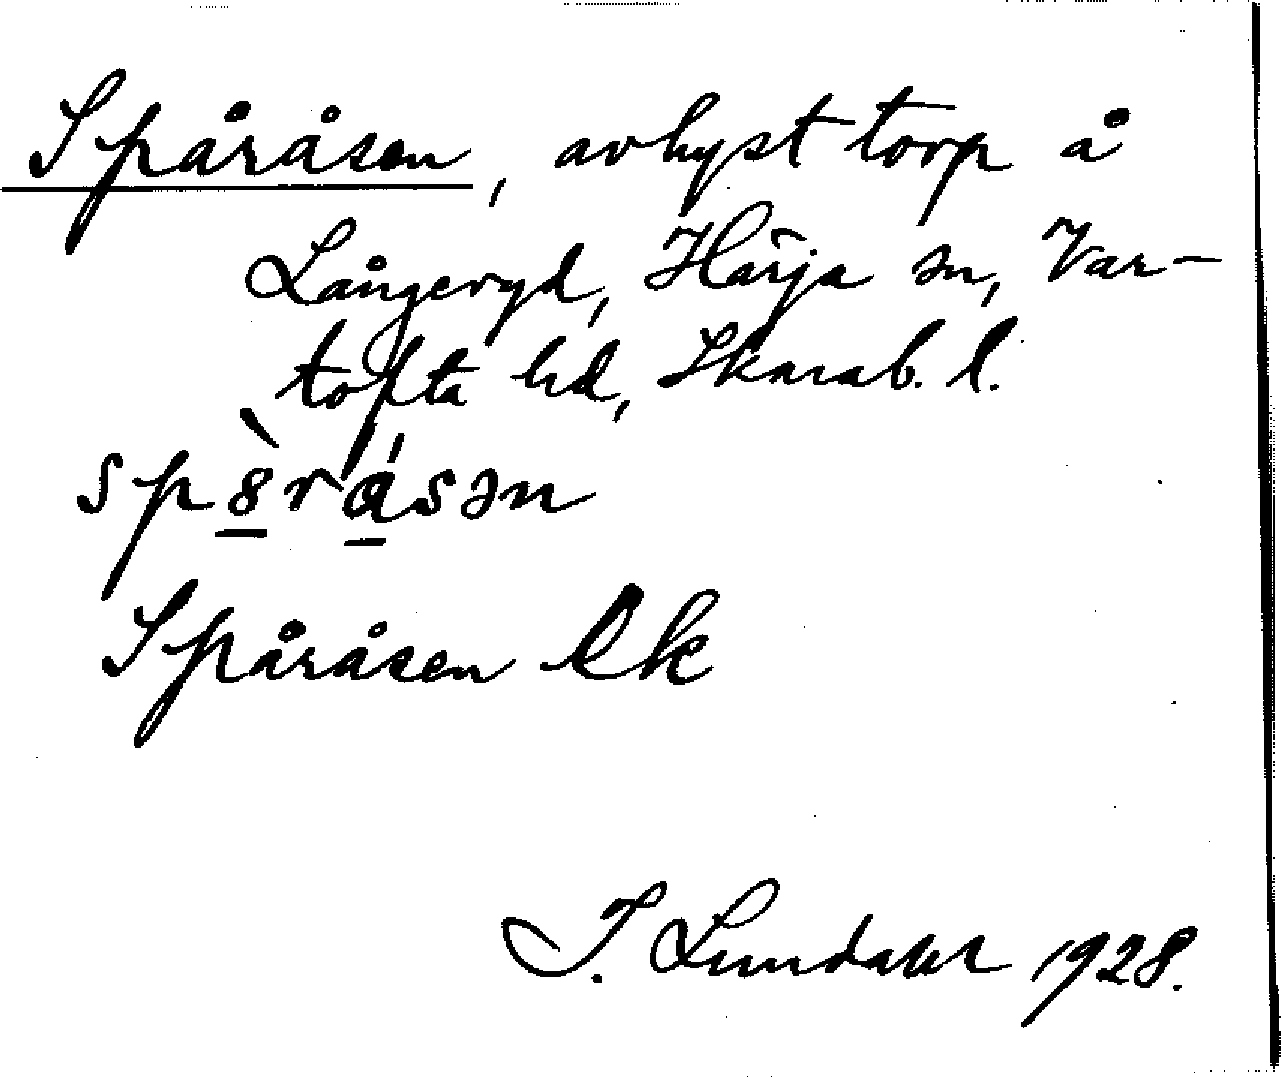 Spåråsen, avhyst torp å
Långeryd, Härja sn, Var-
tofta hd, Skarab. l.
sp8̀rásən
Spåråsen Ek
I. Lundahl 1928.